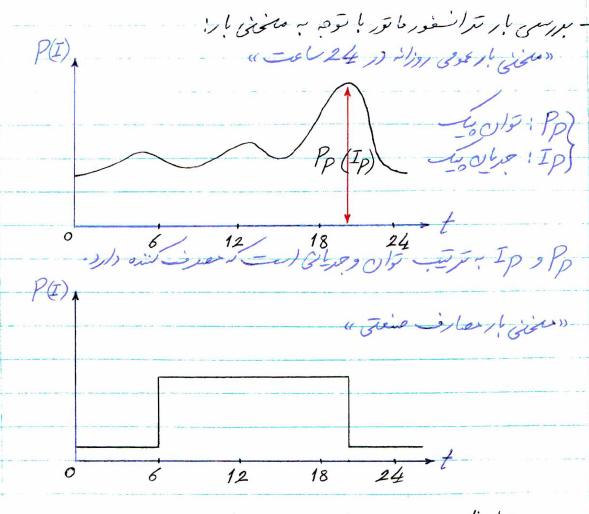 - بررسی بار ترانسفورماتور با توجه به منحنی بار:
P(I)
«منحنی بار عمومی روزانه در 24 ساعت»
Pp : توان پیک
Ip : جریان پیک
Pp (Ip)
t
0 6 12 18 24
Pp و Ip به ترتیب توان و جریانی است که مصرف کننده دارد.
P(I)
«منحنی بار مصارف صنعتی»
t
0 6 12 18 24